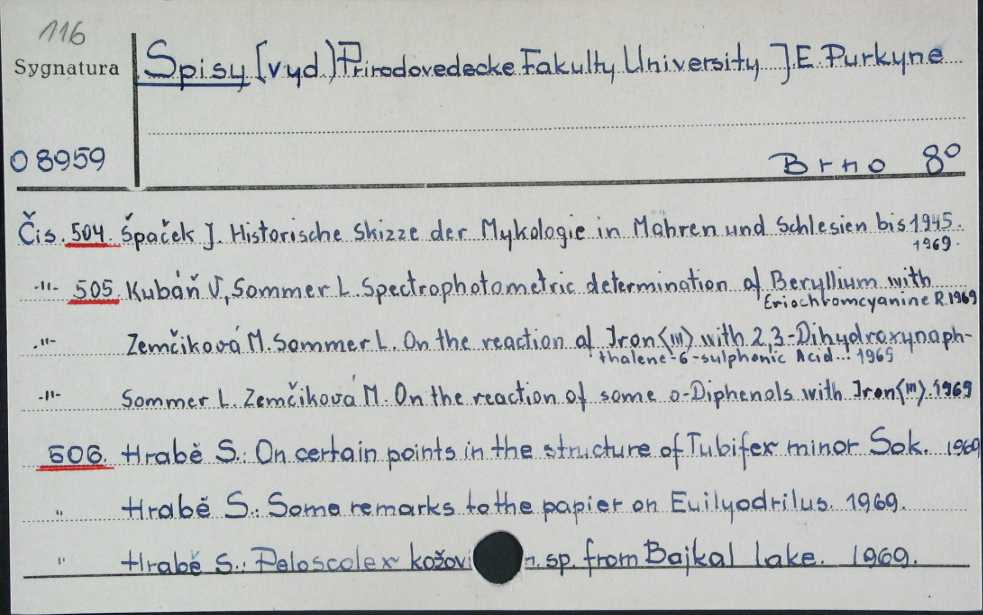 116
Sygnatura
Spisy (vyd) Prirodovedecke Fakulty University J.E. Purkyne
08959
Brno 8°
Čis. 504. Špaček J. Historische Skizze der Mykologie in Mähren und Schlesien bis 1945.
1969.
-"- 505. Kubáň V, Sommer L. Spectrophotometric determination of Beryllium with
Eriochromcyanine R. 1969
-"- Zemčiková M. Sommer L. On the reaction of Iron(III) with 2,3-Dihydroxynaph-
thalene-6-sulphonic Acid... 1969
-"- Sommer L. Zemčiková M. On the reaction of some o-Diphenols with Iron(III). 1969
506. Hrabě S.: On certain points in the structure of Tubifex minor Sok. 1969
" Hrabě S.: Some remarks to the papier on Euilyodrilus. 1969.
" Hrabě S.: Peloscolex n. sp. from Bajkal lake. 1969.